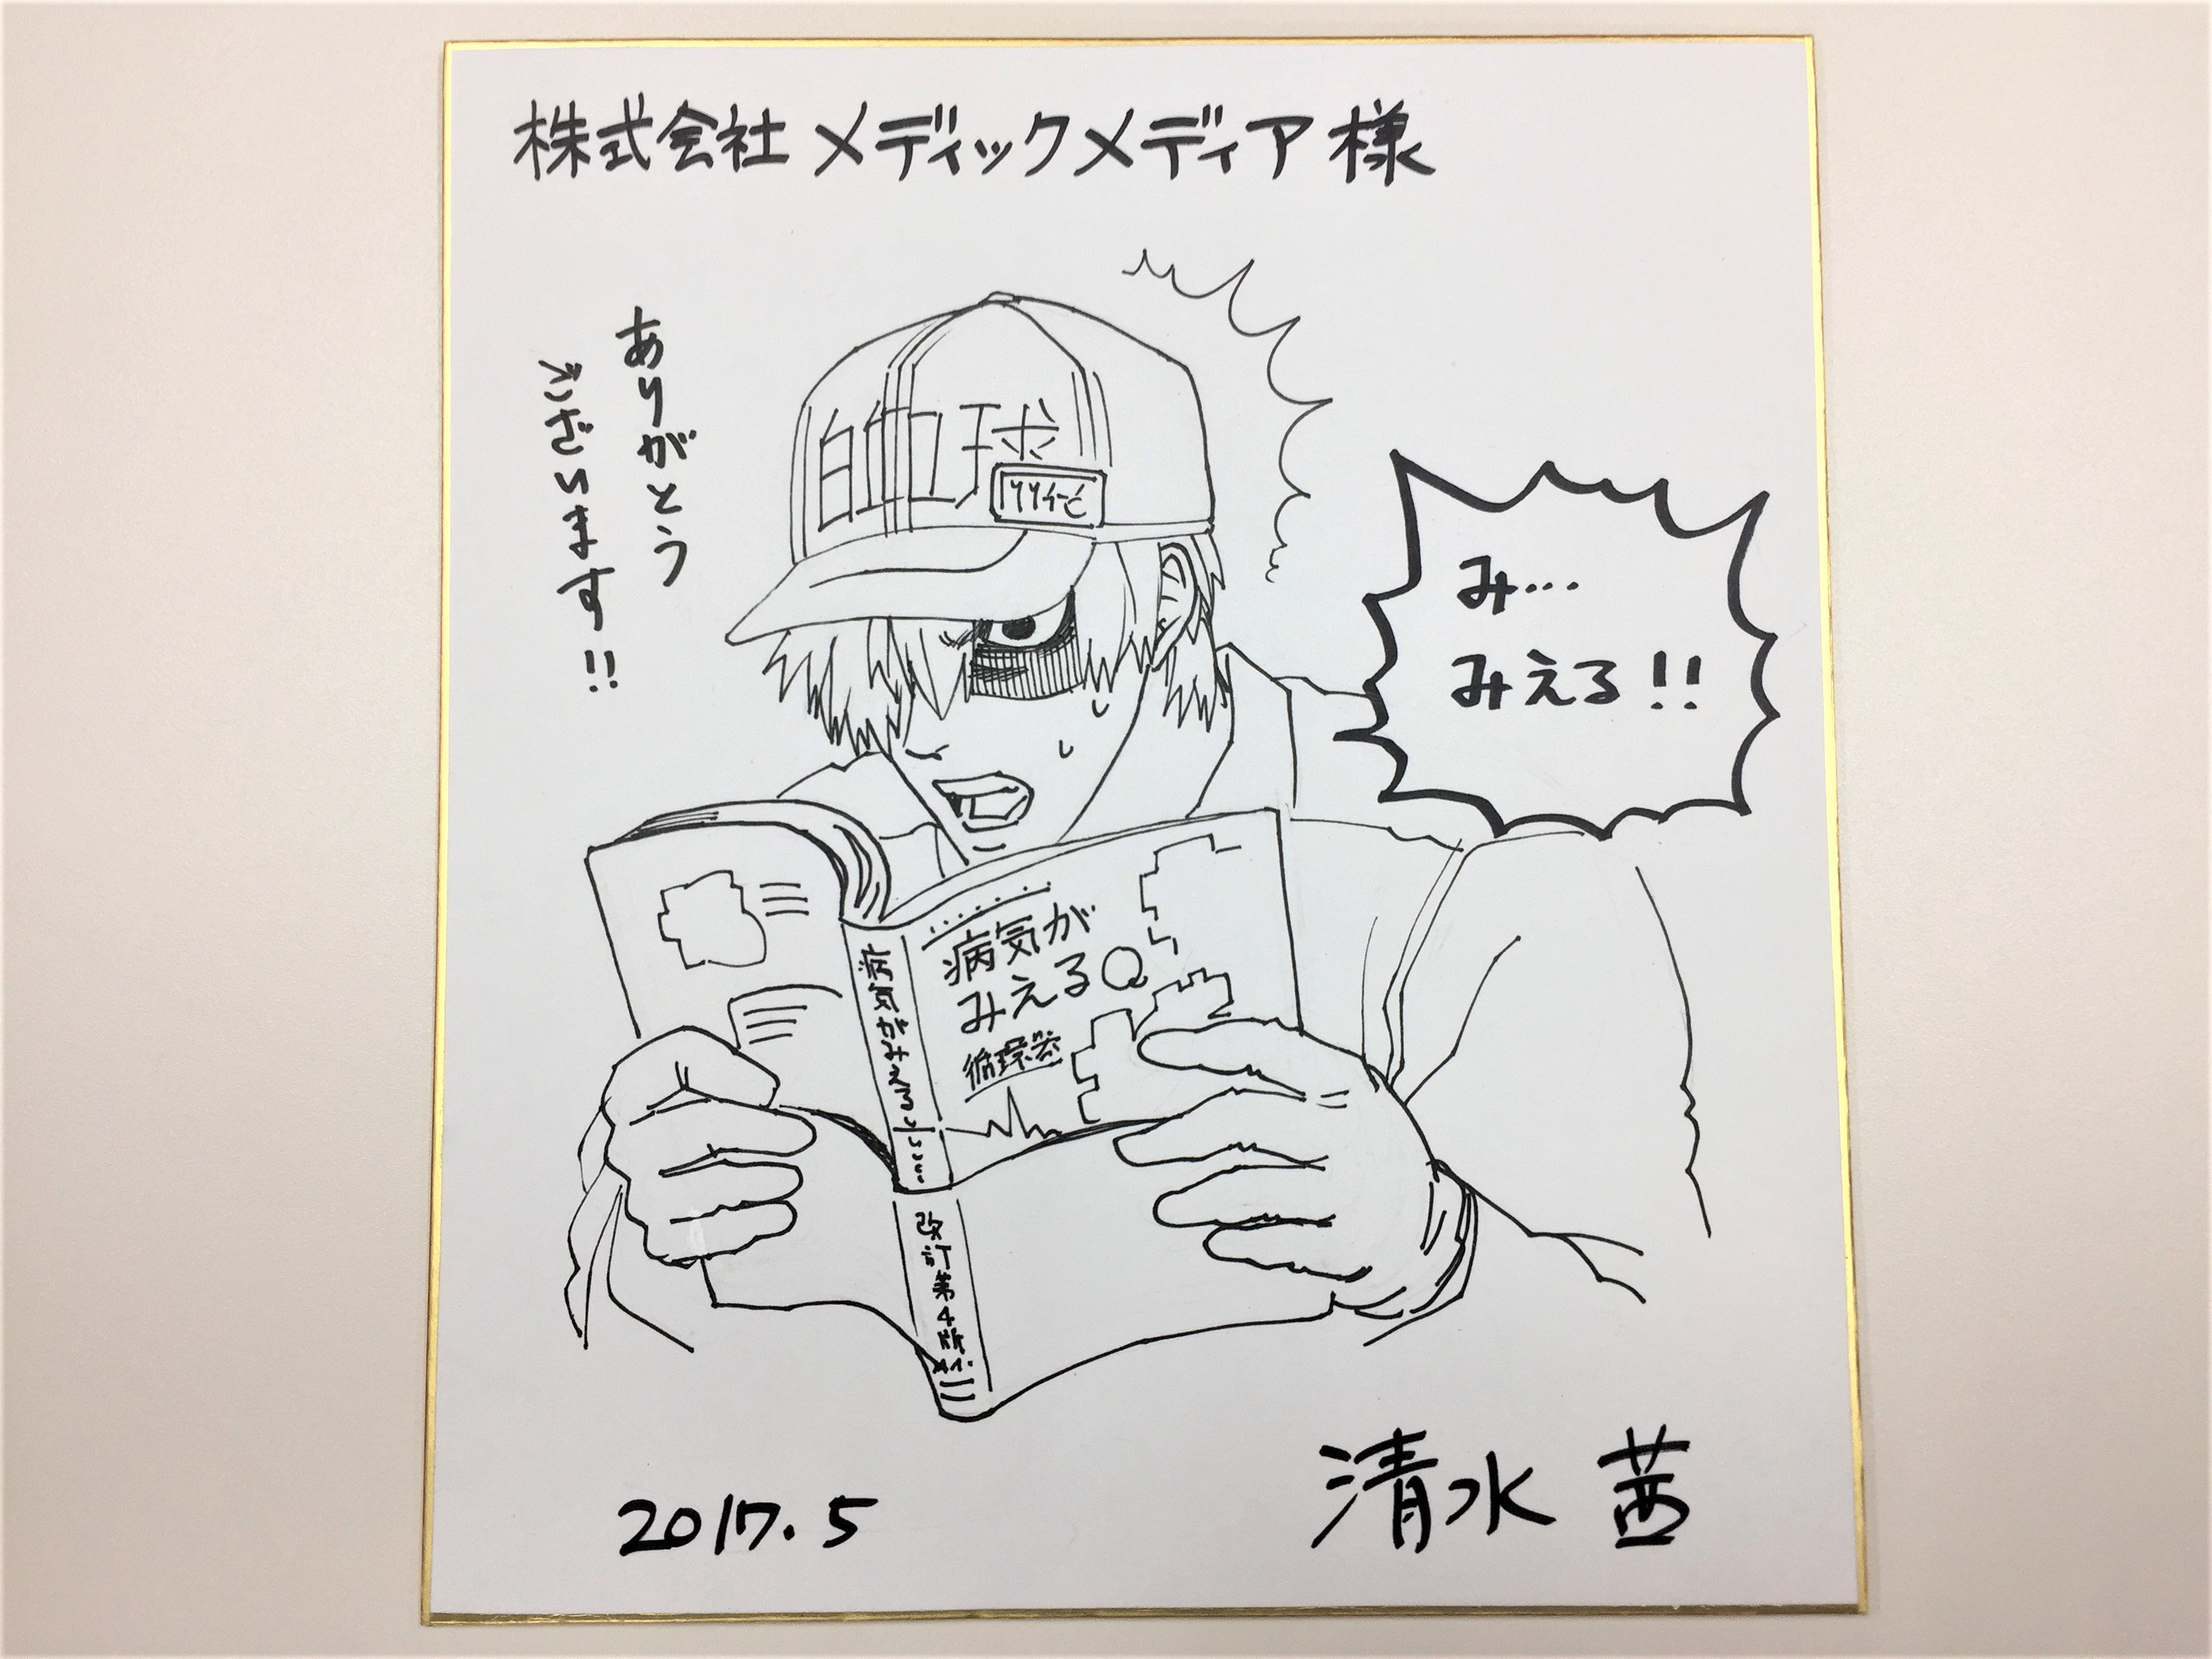 株式会社 メディックメディア 様
ありがとう
ございます!!
白血球
み…
みえる!!
病気が
みえる
循環器
病気がみえる
改訂第4版
2017.5
清水 茜